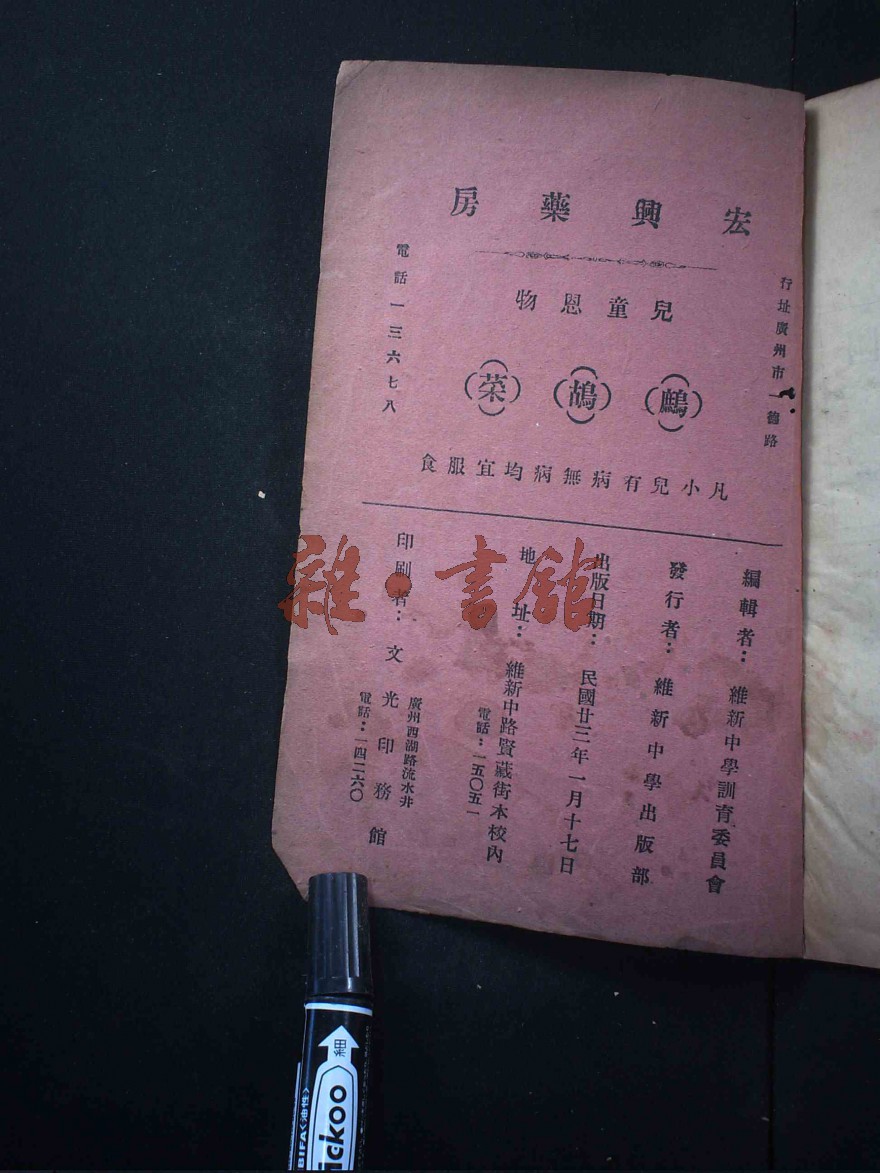 宏興藥房
行址廣州市一德路
兒童恩物
鷓鴣菜
凡小兒有病無病均宜服食
電話一三六七八
編輯者：維新中學訓育委員會
發行者：維新中學出版部
出版日期：民國廿三年一月十七日
地址：維新中路賢藏街本校內
電話：一五〇五一
印刷者：文光印務館
廣州西湖路流水井
電話：一四二六〇
雜·書館
細
BIFA<油性>
ckoo